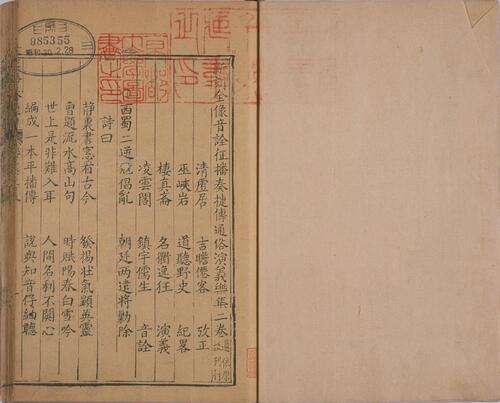 新刻全像音詮征播奏捷傳通俗演義樂集二卷
清虛居 吉瞻僊客 攷正
巫峽岩 道聽野史 紀畧
棲真齋 名衢逸狂 演義
凌雲閣 鎮宇儒生 音詮
西蜀二逆冦倡亂 朝廷兩遣將勦除
詩曰
靜裏書窓看古今 發揚壯氣顯英靈
曾題流水高山句 時賦陽春白雪吟
世上是非難入耳 人間名利不關心
編成一本平播傳 說與知音仔細聽
985355
2.28